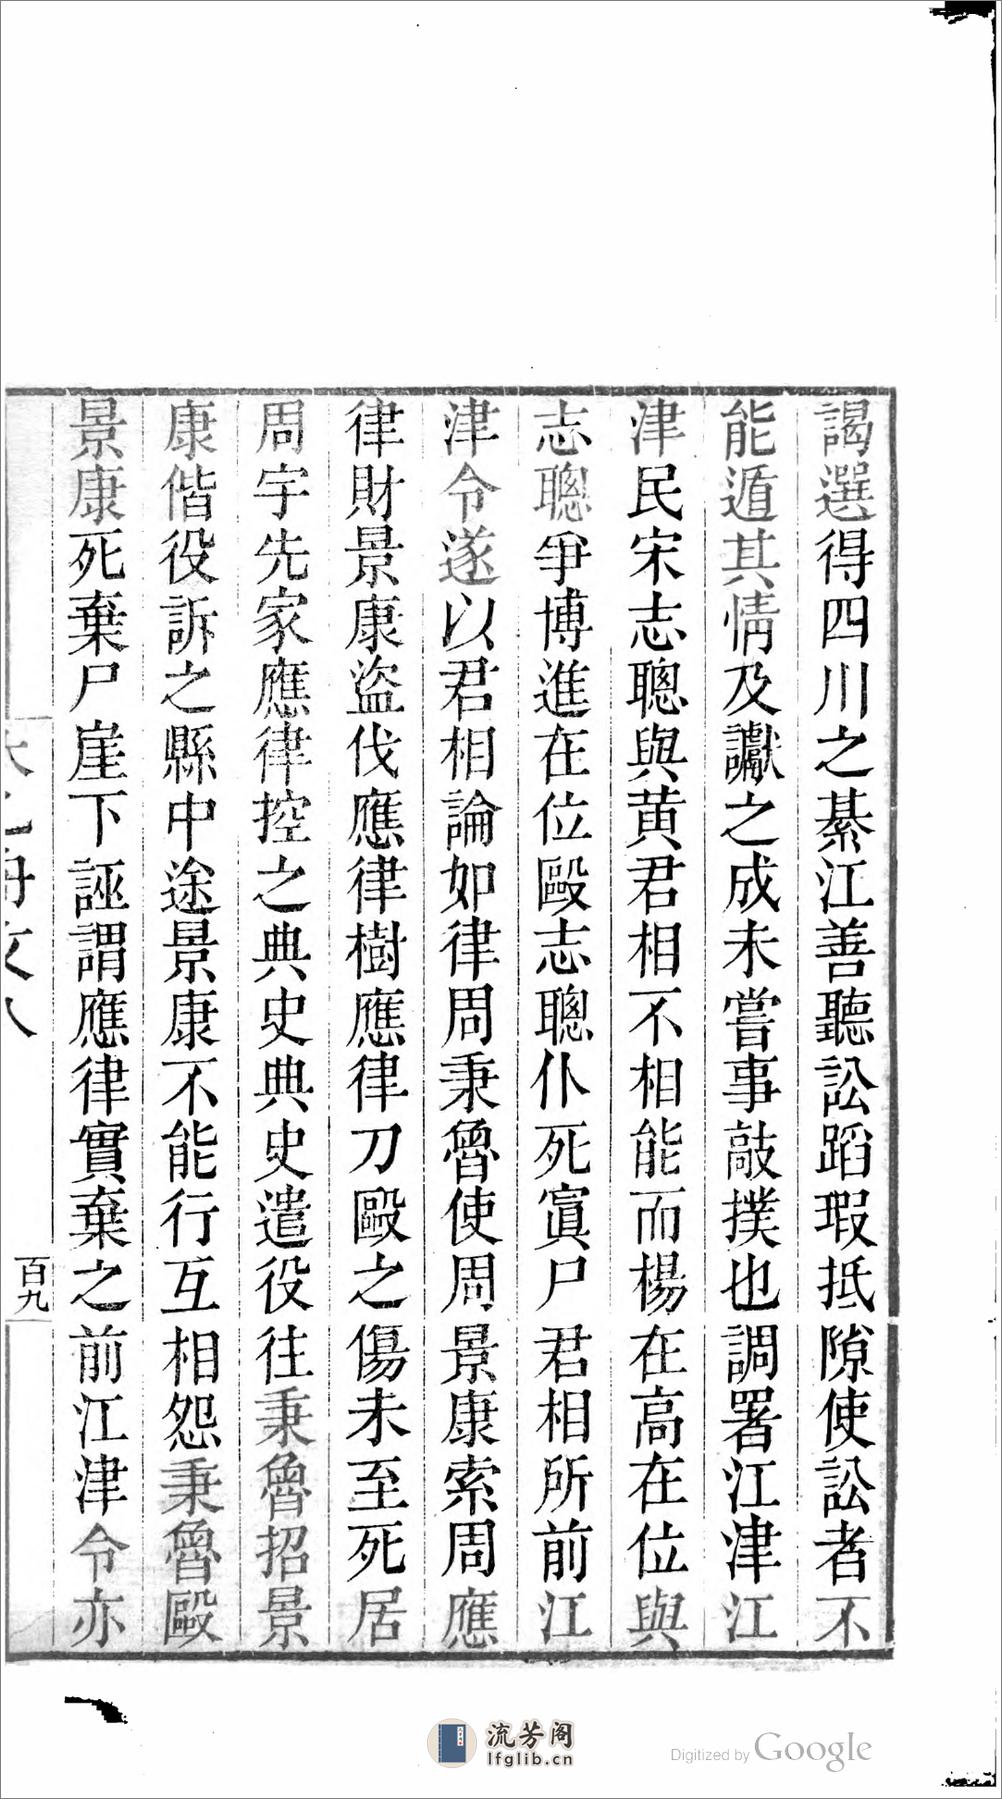 謁選得四川之綦江善聽訟蹈瑕抵隙使訟者不
能遁其情及讞之成未嘗事敲撲也調署江津江
津民宋志聰與黃君相不相能而楊在高在位與
志聰爭博進在位毆志聰仆死窴尸君相所前江
津令遂以君相論如律周秉魯使周景康索周應
律財景康盜伐應律樹應律刀毆之傷未至死居
周宇先家應律控之典史典史遣役往秉魯招景
康偕役訴之縣中途景康不能行互相怨秉魯毆
景康死棄尸崖下誣謂應律實棄之前江津令亦
百九
流芳阁
lfglib.cn
Digitized by Google